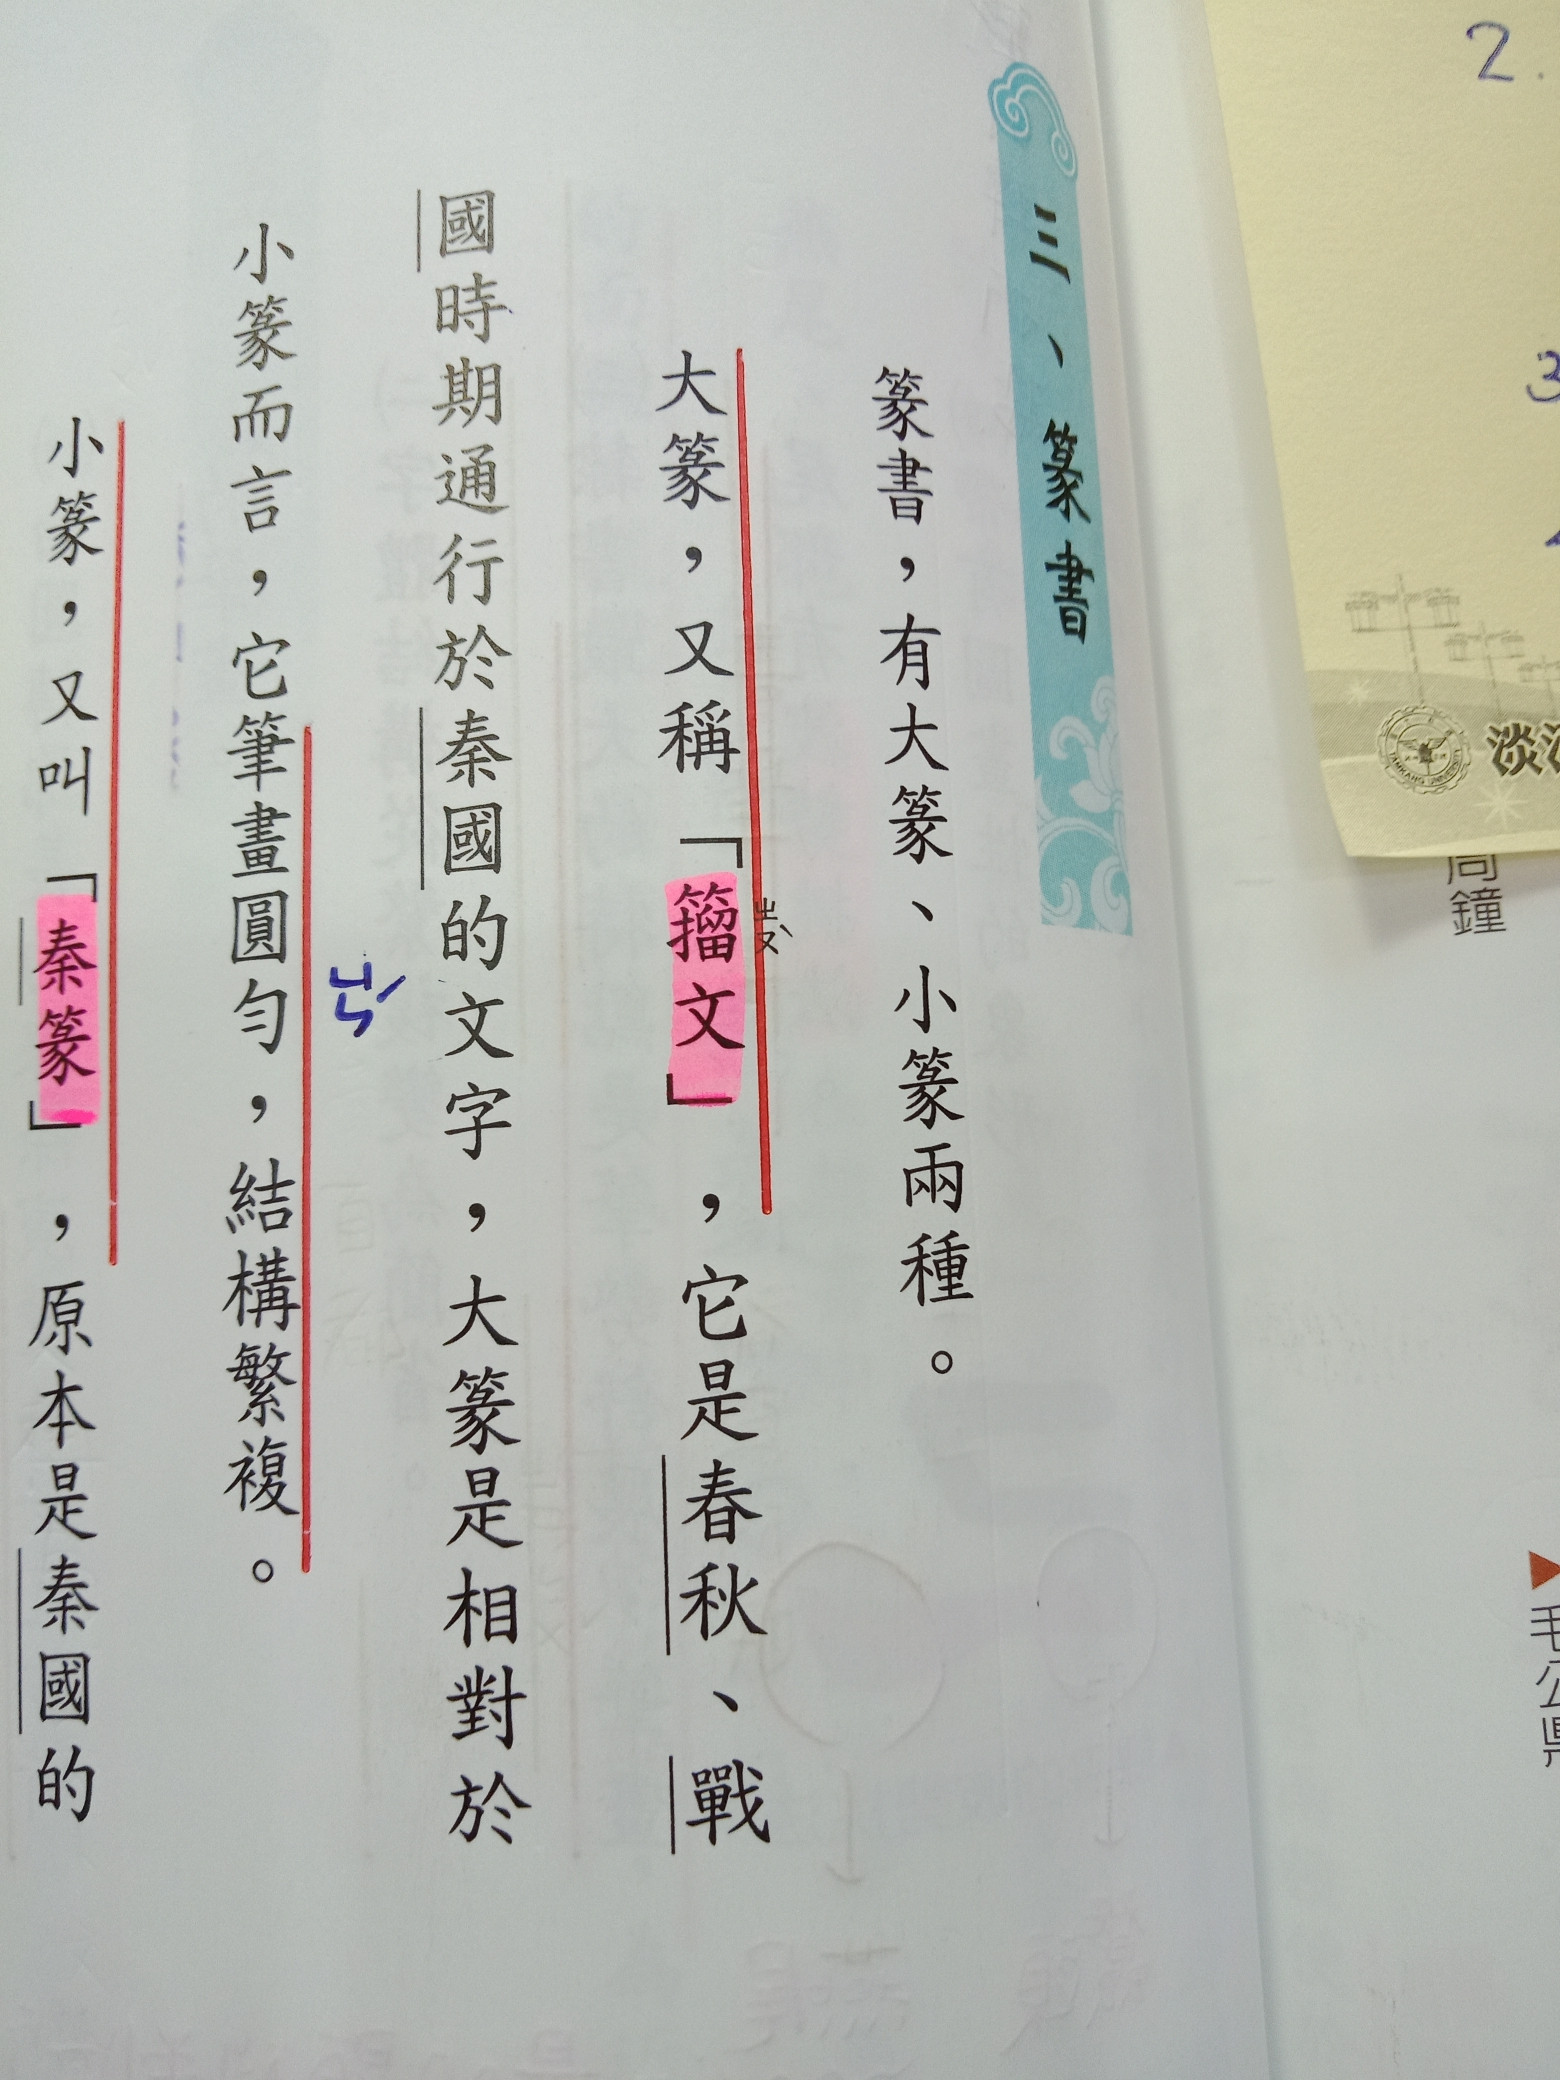 三、篆書
篆書，有大篆、小篆兩種。
大篆，又稱「籀文」，它是春秋、戰
ㄓㄡˋ
國時期通行於秦國的文字，大篆是相對於
小篆而言，它筆畫圓勻，結構繁複。
小篆，又叫「秦篆」，原本是秦國的
2.
3
淡
TAMKANG UNIVERSITY
鐘
毛公